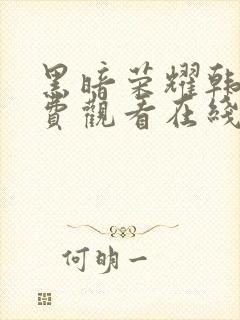 黑暗荣耀韩
费觀看在线
何明一